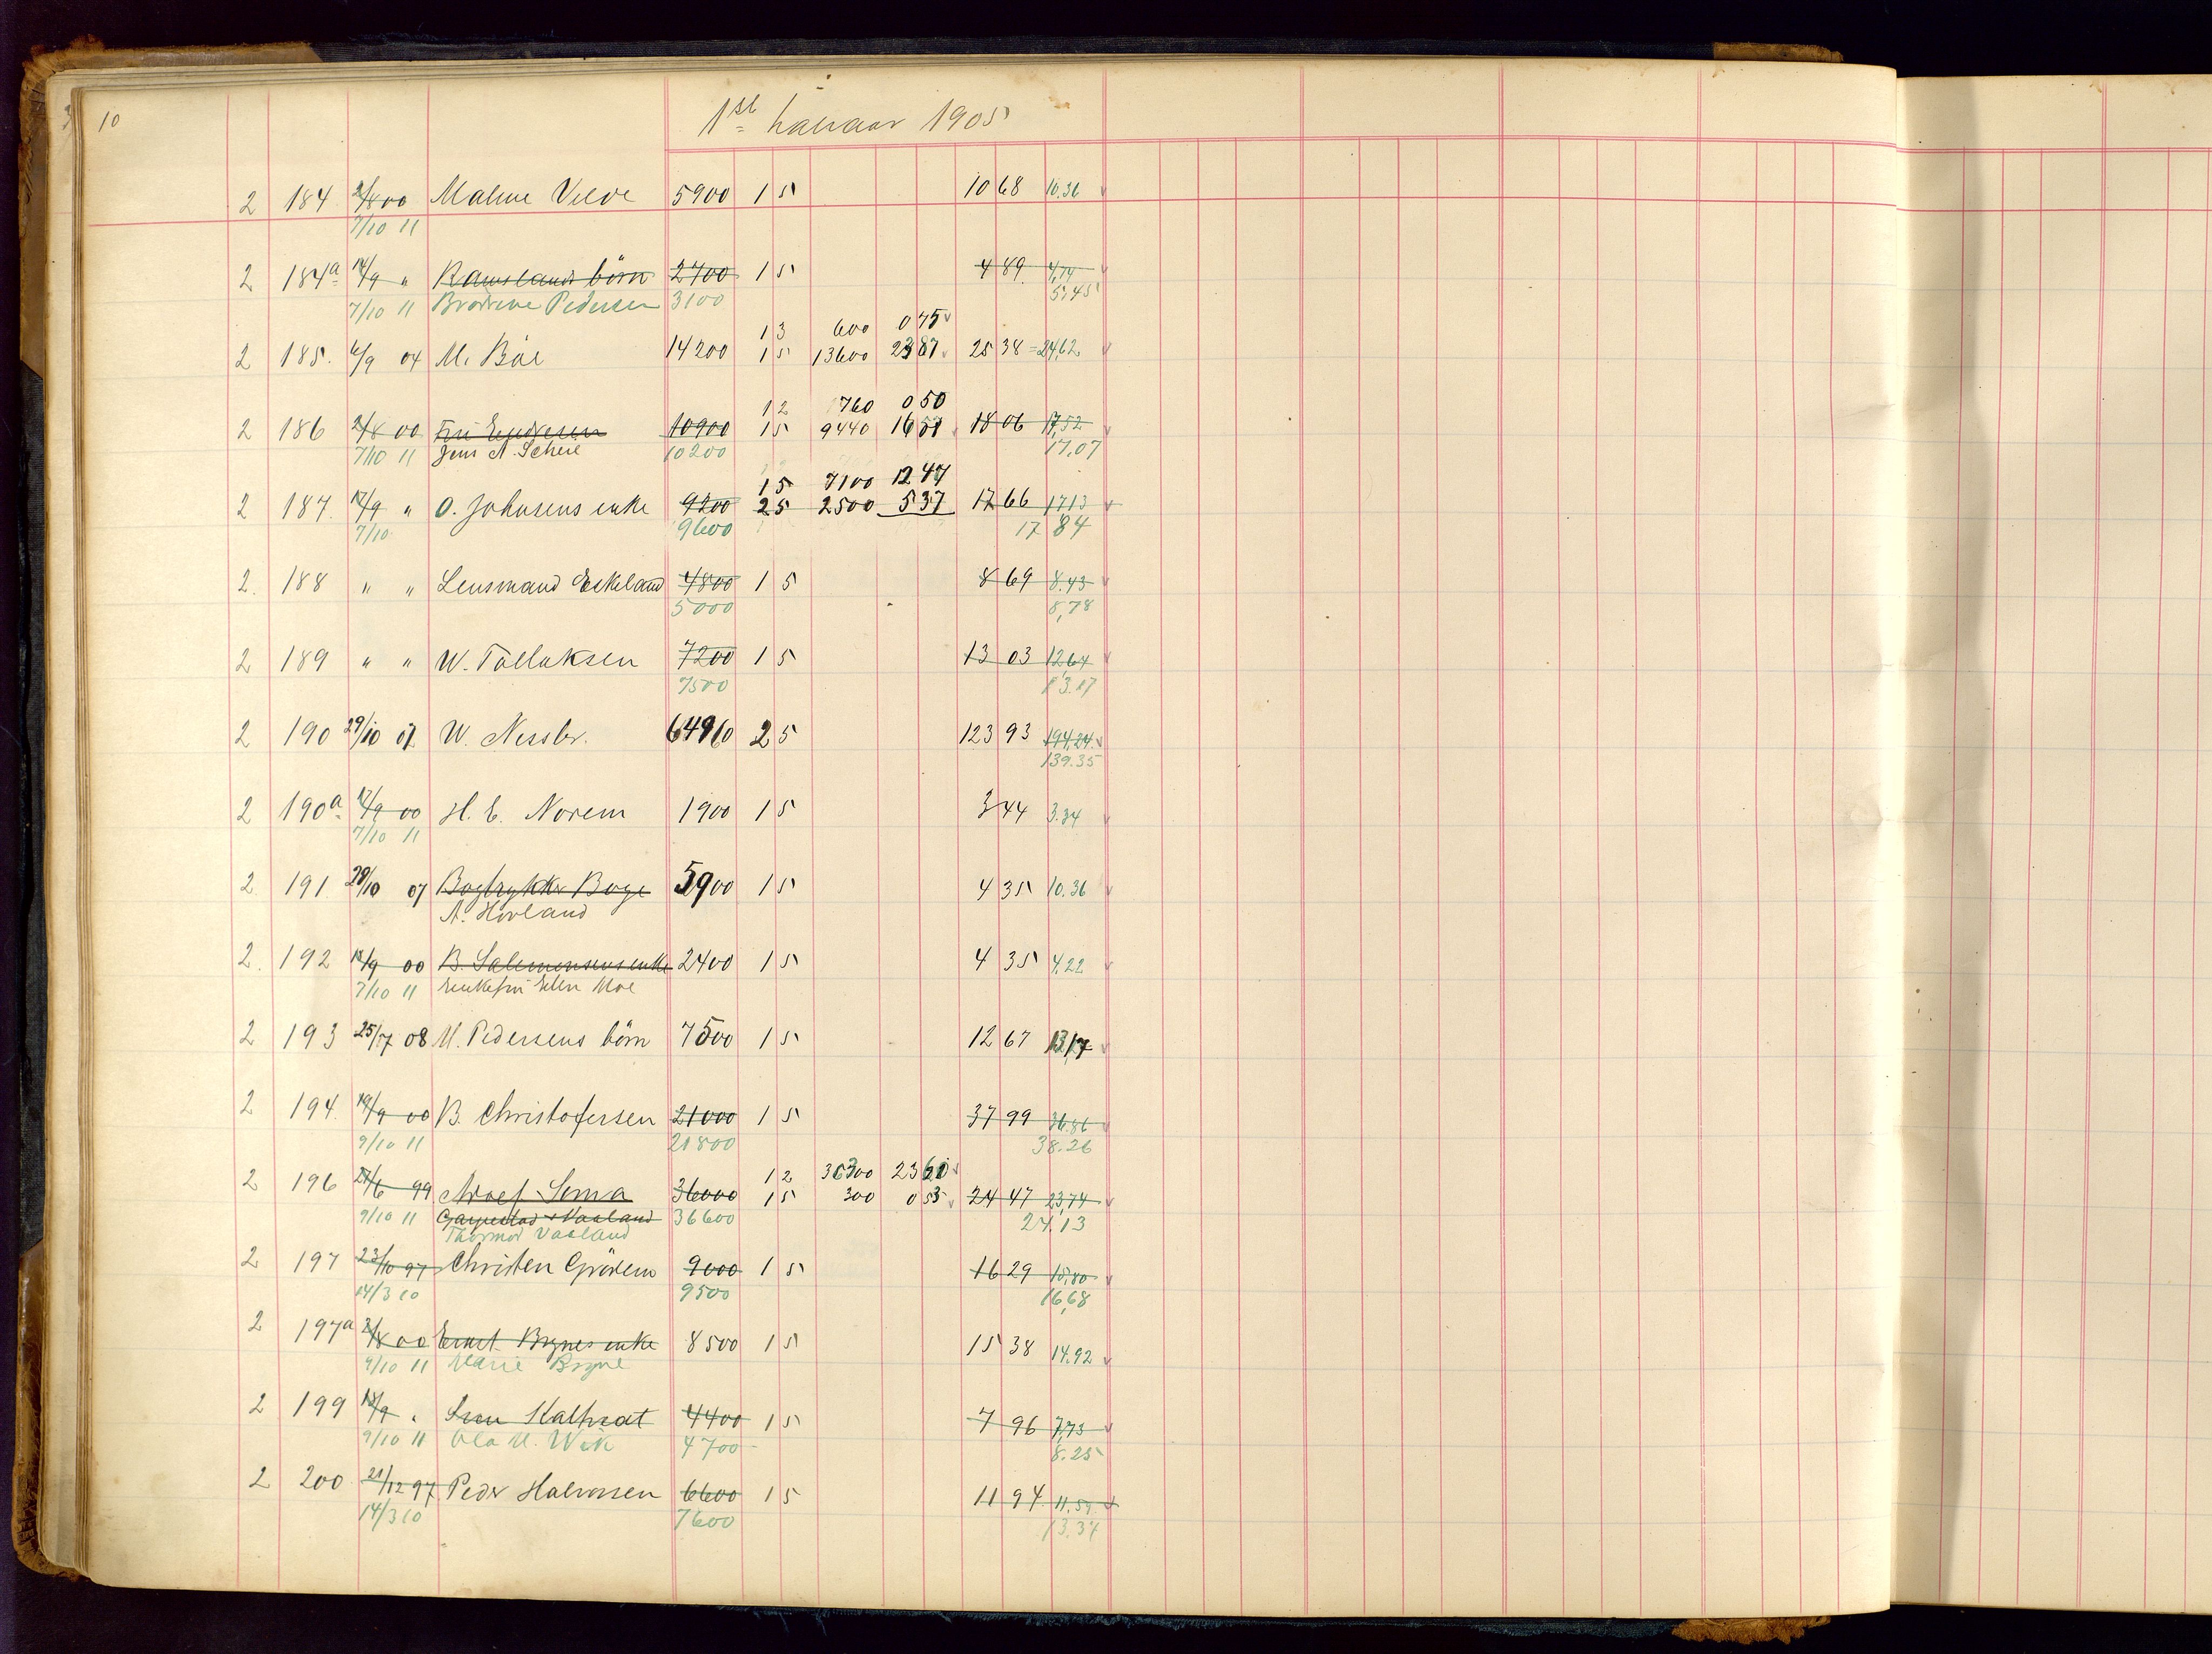 10
1st halvaar 1905
2 184 2/8 00 Malene Velde 5900 1 5 10 68 10.36
7/10 11
2 184a 14/9 " Ramslands börn 2700 1 5 4 89 4,74
7/10 11 Brödrene Pedersen 3100 5,45
1 3 600 0 75
2 185. 6/9 04 M. Böe 14200 1 5 13600 23 87 25 38 = 24,62
1 2 760 0 50
2 186 2/8 00 10900 1 5 9440 16 51 18 06 17,52
7/10 11 Jens A. Scheie 10200 17,07
1 5 7100 12 47
2 187. 12/9 " O. Johnsens enke 9200 2 5 2500 5 37 17 66 17 13
7/10 9600 17 84
2. 188 " " Lensmand Eskeland 4800 1 5 8 69 8.43
5000 8,78
2 189 " " W. Tallaksen 7200 1 5 13 03 12,64
7500 13.17
2 190 29/10 07 W. Nessler. 64960 2 5 123 93 194,24
139.35
2 190a 12/9 00 H. E. Norem 1900 1 5 3 44 3.34
7/10 11
2 191 29/10 07 Bogtrykker Boge 5900 1 5 4 35 10.36
A. Hovland
2. 192 18/9 00 B. Salemonsens enke 2400 1 5 4 35 4,22
7/10 11 Enkefru Elen Moe
2 193 25/7 08 M. Pedersens börn 7500 1 5 12 67 13,17
2 194. 19/9 00 B. Christofersen 21000 1 5 37 99 36.86
9/10 11 21800 38.26
1 2 36300 23 60
2 196 27/6 99 Adolf Sema 36000 1 5 300 0 53 24 47 23,74
9/10 11 Garpestad & Vaaland 36600 24.13
Thormod Vaaland
2 197 23/10 97 Christen Grödem 9000 1 5 16 29 15,80
14/3 10 9500 16,68
2 197a 2/8 00 Ernst Brynes enke 8500 1 5 15 38 14.92
9/10 11 Marie Bryne
2 199 18/9 " Kalhvat 4400 1 5 7 96 7,73
9/10 11 Ola M. Wik 4700 8.25
2 200 21/12 97 Peder Halvorsen 6600 1 5 11 94 11.59
14/3 10 7600 13.34